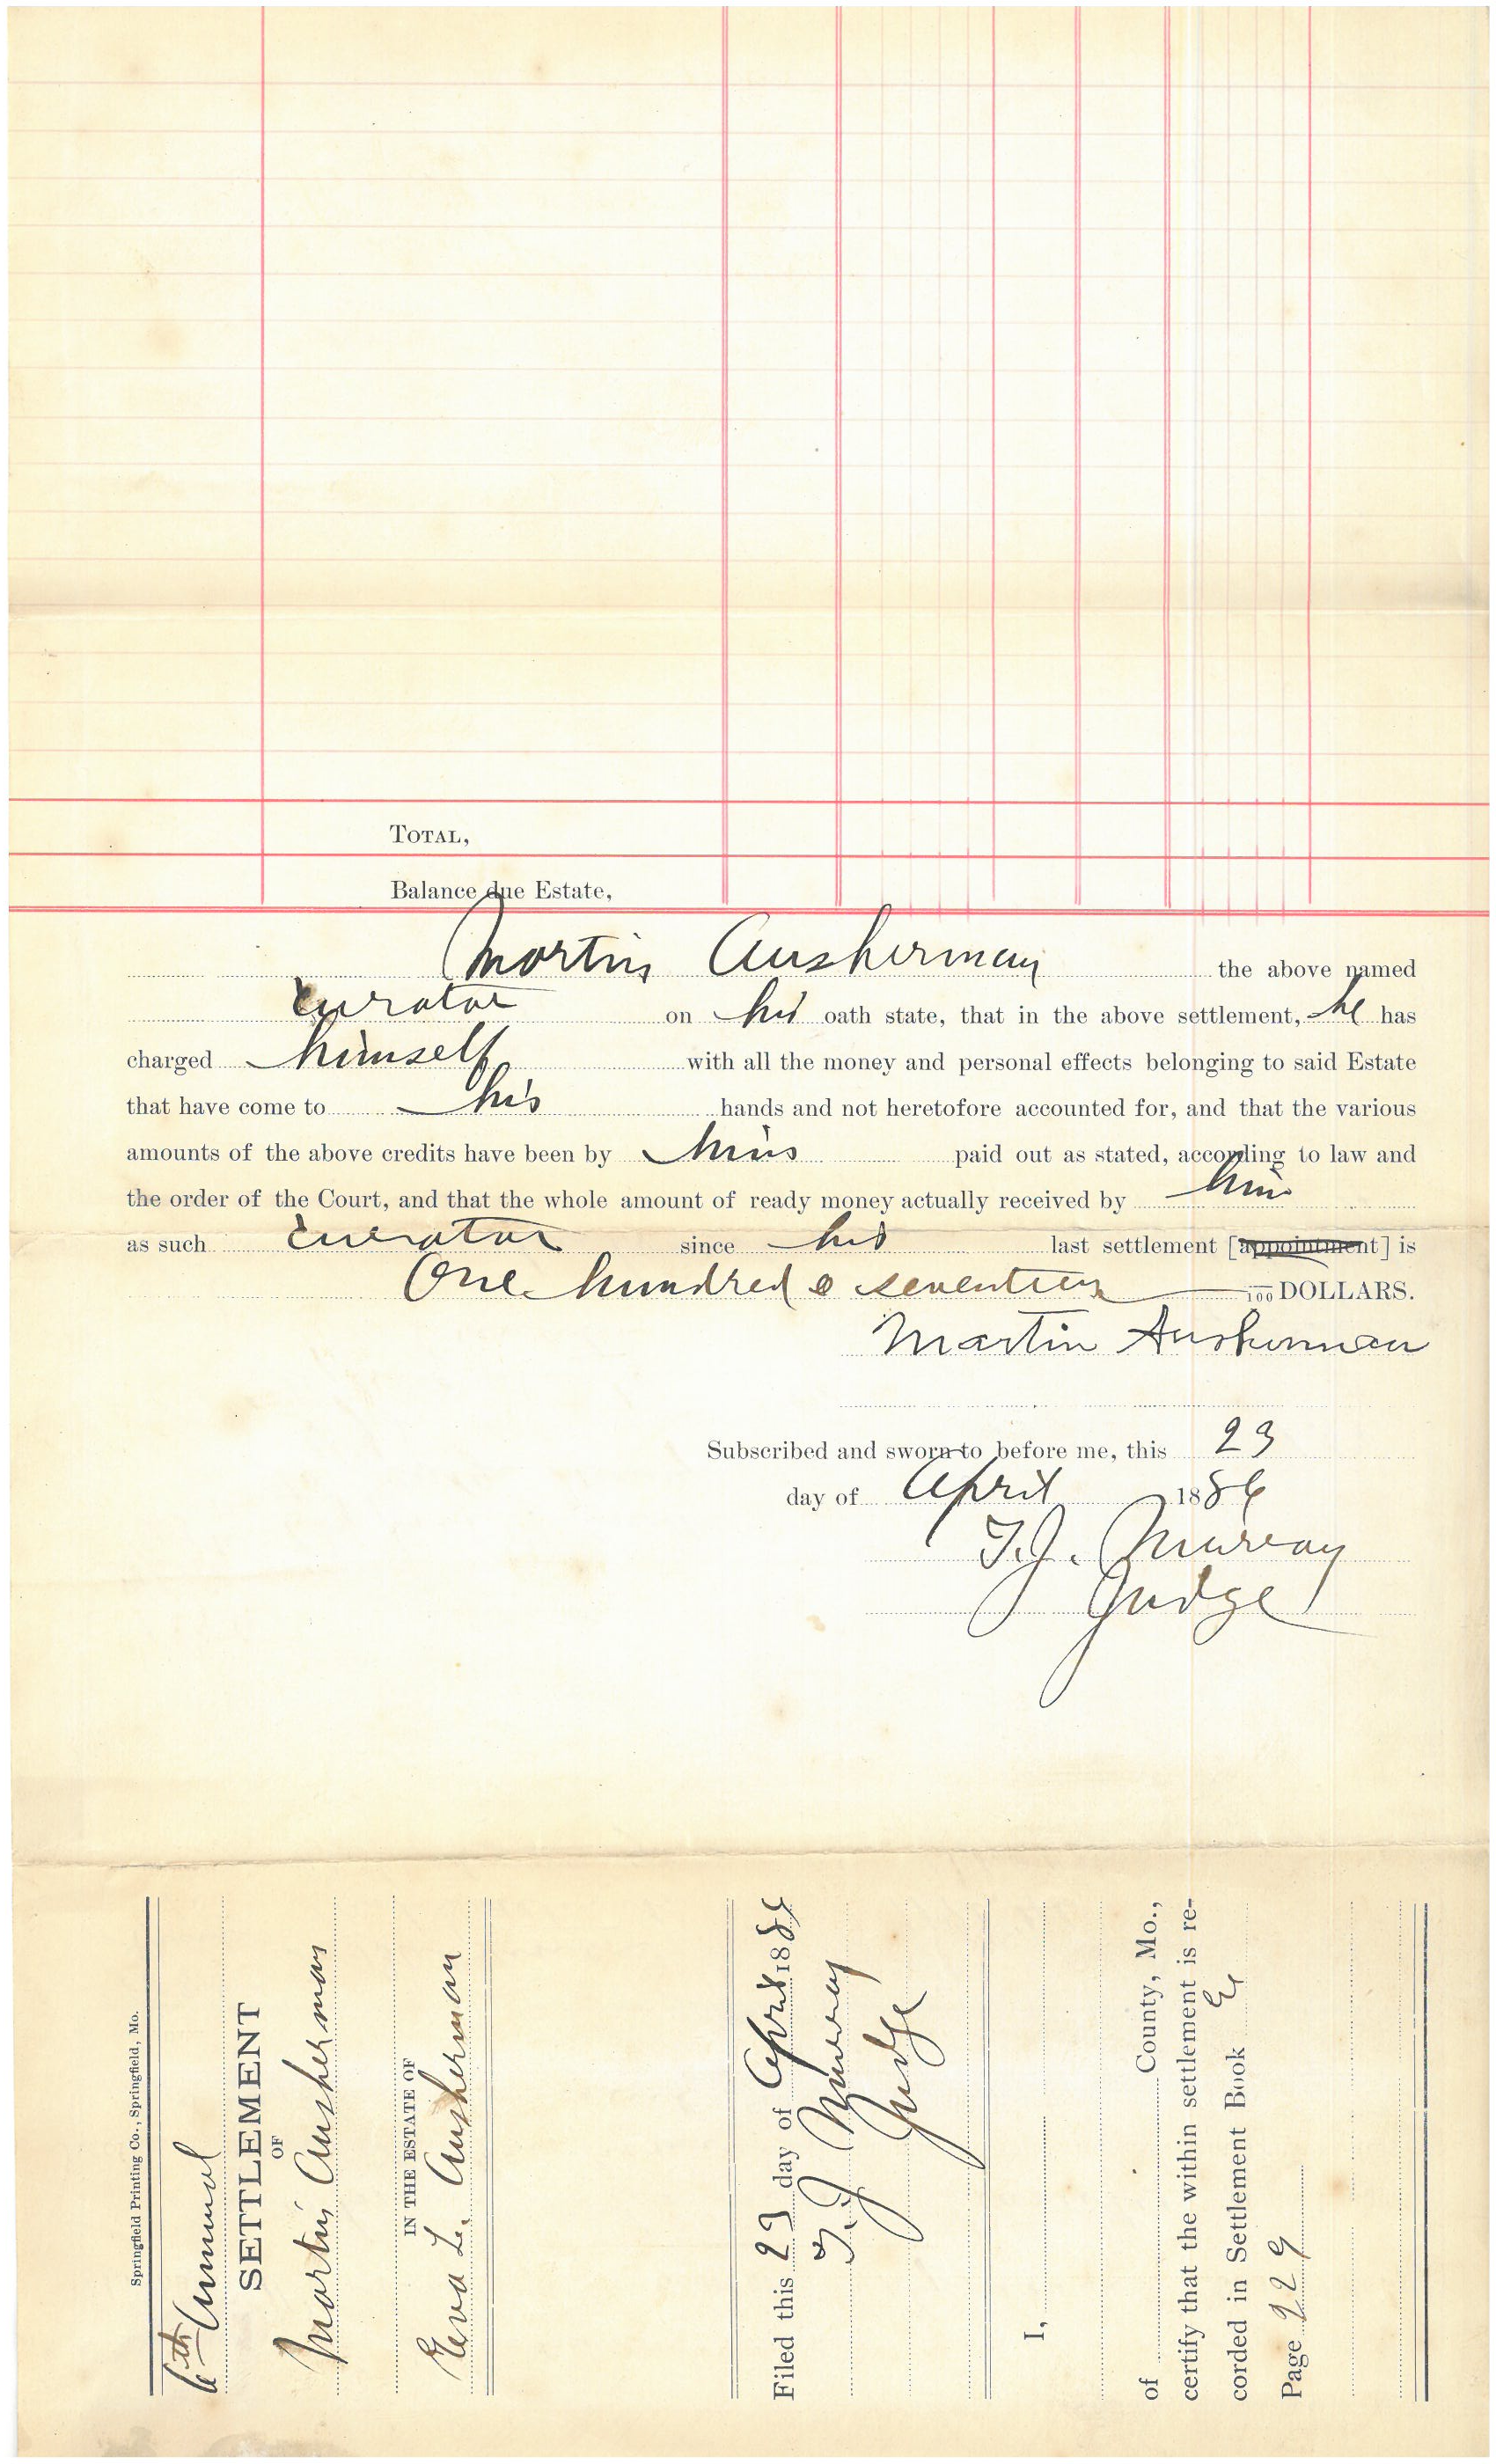 TOTAL,
Balance due Estate,
Martin Ausherman the above named
Curator on his oath state, that in the above settlement, he has
charged himself with all the money and personal effects belonging to said Estate
that have come to his hands and not heretofore accounted for, and that the various
amounts of the above credits have been by him paid out as stated, according to law and
the order of the Court, and that the whole amount of ready money actually received by him
as such Curator since his last settlement [appointment] is
One hundred & seventeen /100 DOLLARS.
Martin Ausherman
Subscribed and sworn to before me, this 23
day of April 1886
T.J. Murray
Judge
Springfield Printing Co., Springfield, Mo.
6th Annual
SETTLEMENT
OF
Martin Ausherman
IN THE ESTATE OF
Eva L. Ausherman
Filed this 23 day of April 1886
T.J. Murray
Judge
I,
of County, Mo.,
certify that the within settlement is re-
corded in Settlement Book E
Page 229